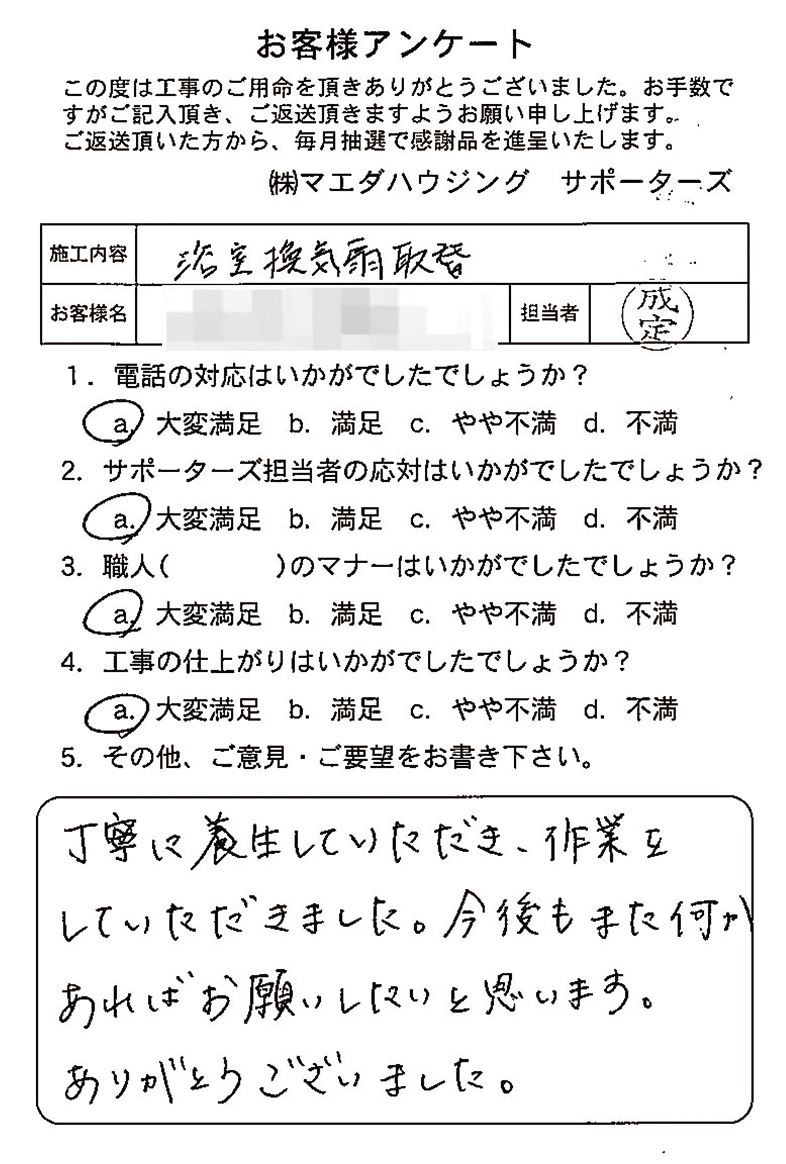 お客様アンケート
この度は工事のご用命を頂きありがとうございました。お手数で
すがご記入頂き、ご返送頂きますようお願い申し上げます。
ご返送頂いた方から、毎月抽選で感謝品を進呈いたします。
㈱マエダハウジング　サポーターズ
施工内容 浴室換気扇取替
お客様名 担当者 成定
1. 電話の対応はいかがでしたでしょうか？
a. 大変満足 b. 満足 c. やや不満 d. 不満
2. サポーターズ担当者の応対はいかがでしたでしょうか？
a. 大変満足 b. 満足 c. やや不満 d. 不満
3. 職人(　　　　)のマナーはいかがでしたでしょうか？
a. 大変満足 b. 満足 c. やや不満 d. 不満
4. 工事の仕上がりはいかがでしたでしょうか？
a. 大変満足 b. 満足 c. やや不満 d. 不満
5. その他、ご意見・ご要望をお書き下さい。
丁寧に養生していただき、作業を
していただきました。今後もまた何か
あればお願いしたいと思います。
ありがとうございました。